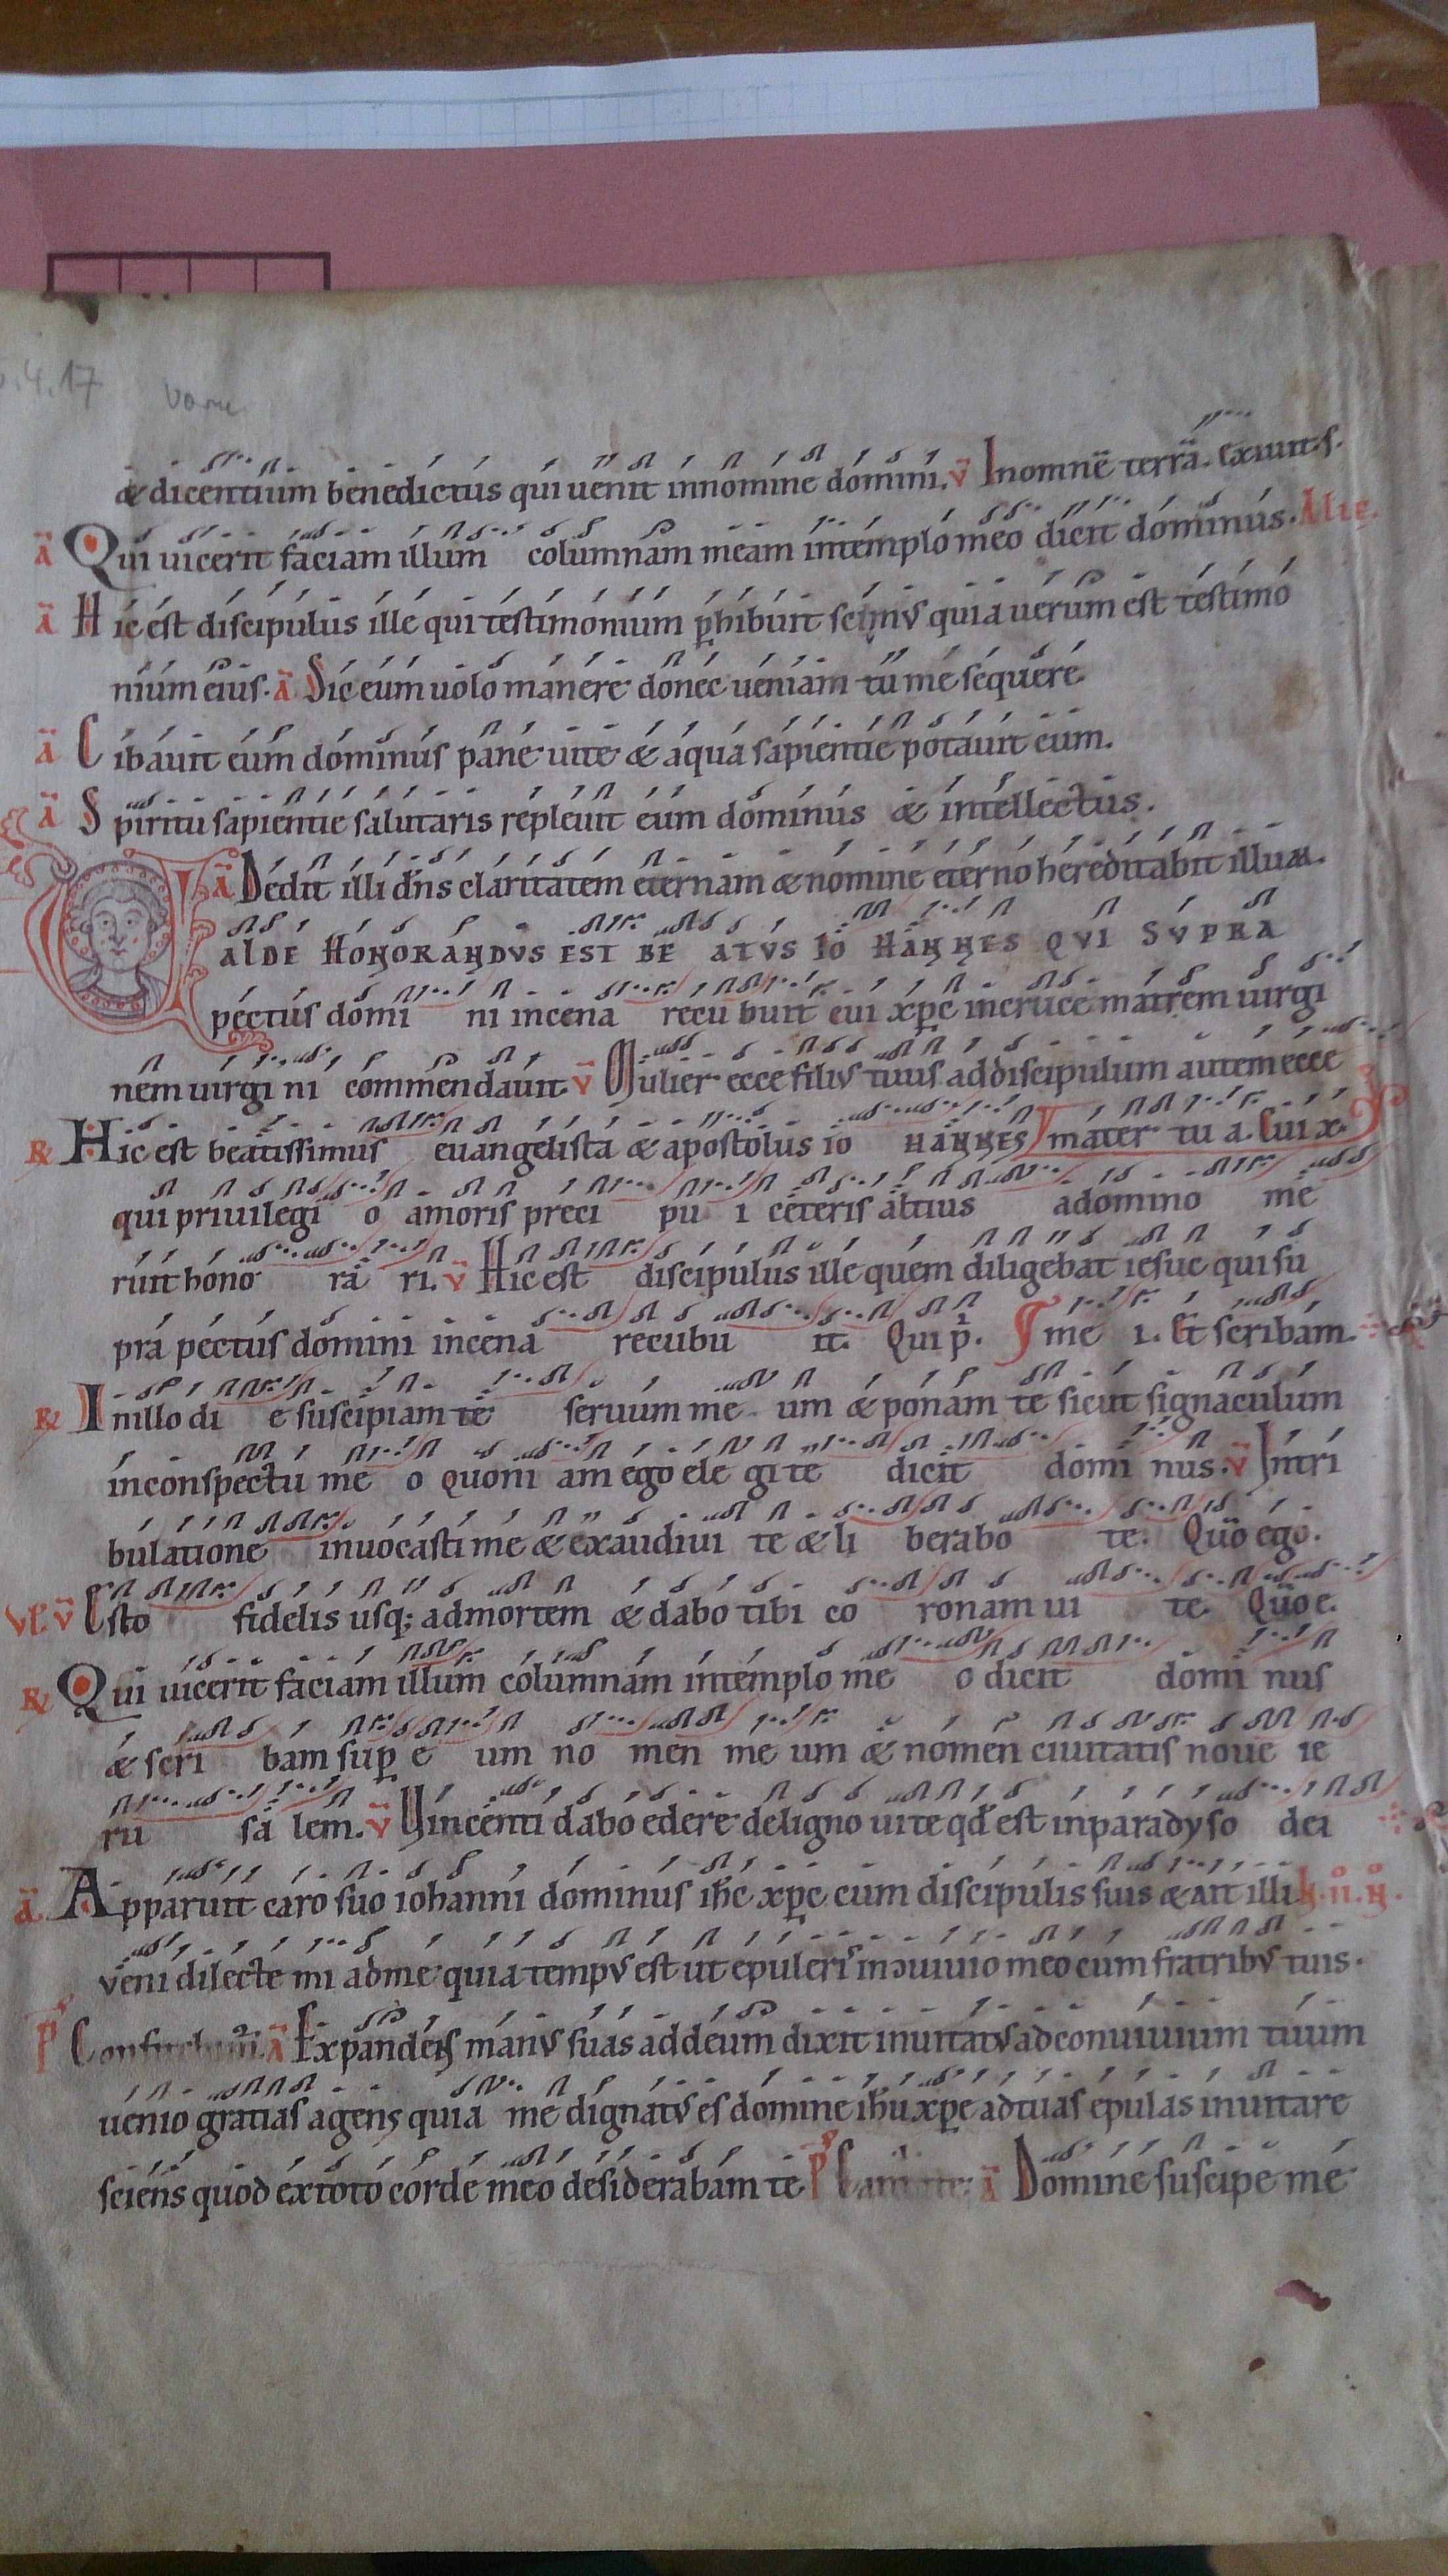 .4.17 vorne
& dicentium benedictus qui uenit innomine domini. v̄ Inomnē terrā. exiuit. s.
ā Qui uicerit faciam illum columnam meam intemplo meo dicit dominus. Alie.
ā Hic est discipulus ille qui testimonium phibuit scimus quia uerum est testimo
nium eius. ā Sic eum uolo manere donec ueniam tu me sequere
ā Cibauit eum dominus pane uite & aqua sapientie potauit eum.
ā Spiritu sapientie salutaris repleuit eum dominus & intellectus.
ā Dedit illi dn̄s claritatem eternam & nomine eterno hereditabit illum.
VALDE HONORANDVS EST BE ATVS IO HANNES QVI SVPRA
pectus domi ni incena recu buit cui xp̄c incruce matrem uirgi
nem uirgi ni commendauit v̄ Mulier ecce filius tuus addiscipulum autem ecce
R Hic est beatissimus euangelista & apostolus io HANNES mater tu a. Cui x.
qui priuilegi o amoris preci pu i ceteris altius adomino me
ruit hono ra ri. v̄ Hic est discipulus ille quem diligebat iesuc qui su
pra pectus domini incena recubu it. Qui p̄. me i. Et scribam.
R Inillo di e suscipiam te seruum me um & ponam te sicut signaculum
inconspectu me o quoni am ego ele gi te dicit domi nus. v̄ Intri
bulatione inuocasti me & exaudiui te & li berabo te. Quō ego.
vl v̄ Esto fidelis usq; admortem & dabo tibi co ronam ui te. Quō e.
R Qui uicerit faciam illum columnam intemplo me o dicit domi nus
& scri bam sup e um no men me um & nomen ciuitatis noue ie
ru sa lem. v̄ Vincenti dabo edere deligno uite qd est inparadyso dei
ā Apparuit caro suo iohanni dominus ih̄c xp̄c cum discipulis suis & ait illi
veni dilecte mi adme quia tempus est ut epuleris inↄuiuio meo cum fratribus tuis.
P ā Expandens manus suas addeum dixit inuitatus adconuiuium tuum
uenio gratias agens quia me dignatus es domine ih̄u xp̄e adtuas epulas inuitare
sciens quod extoto corde meo desiderabam te P ā Domine suscipe me